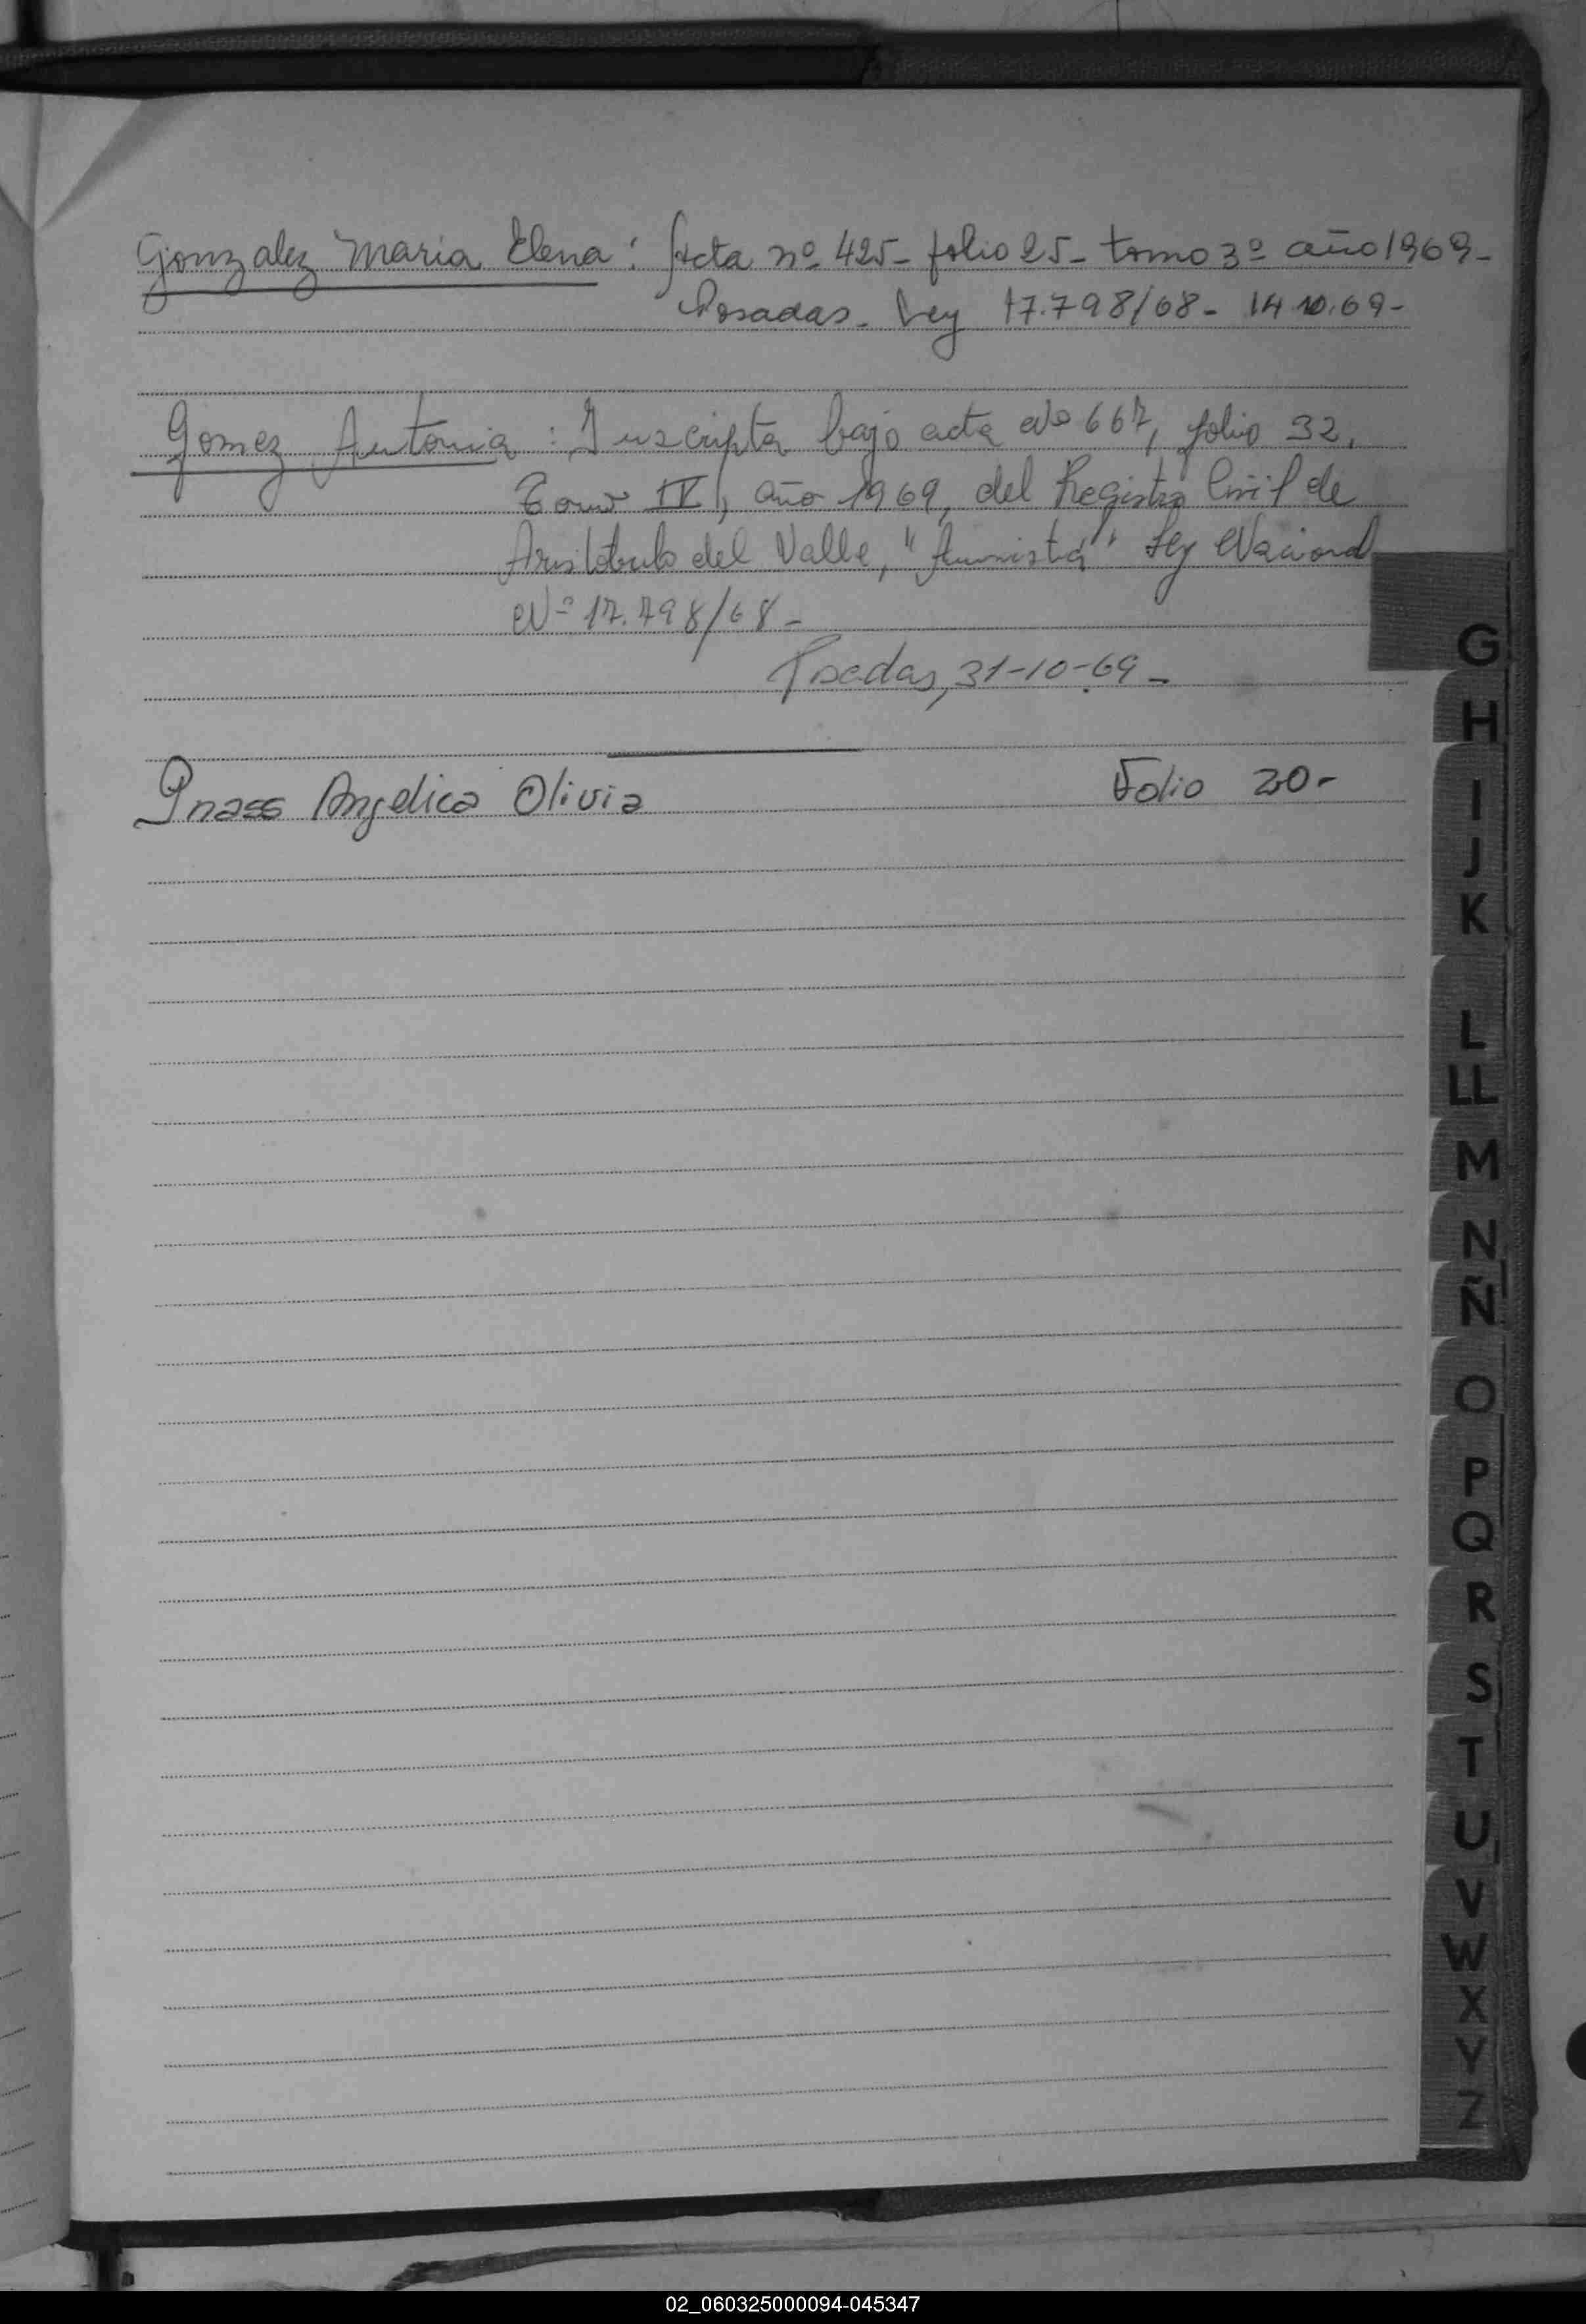 Gonzalez Maria Elena: Acta nº 425- folio 25- tomo 3º año 1969-
Posadas- Ley 17.798/68- 14.10.69-
Gomez Antonia: Inscripta bajo acta Nº 667, folio 32,
Tomo IV, año 1969, del Registro Civil de
Aristobulo del Valle, "Amnistia" Ley Nacional
Nº 17.798/68-
Posadas, 31-10-69-
Gnass Angelica Olivia Folio 20-
G
H
I
J
K
L
LL
M
N
Ñ
O
P
Q
R
S
T
U
V
W
X
Y
Z
02_060325000094-045347